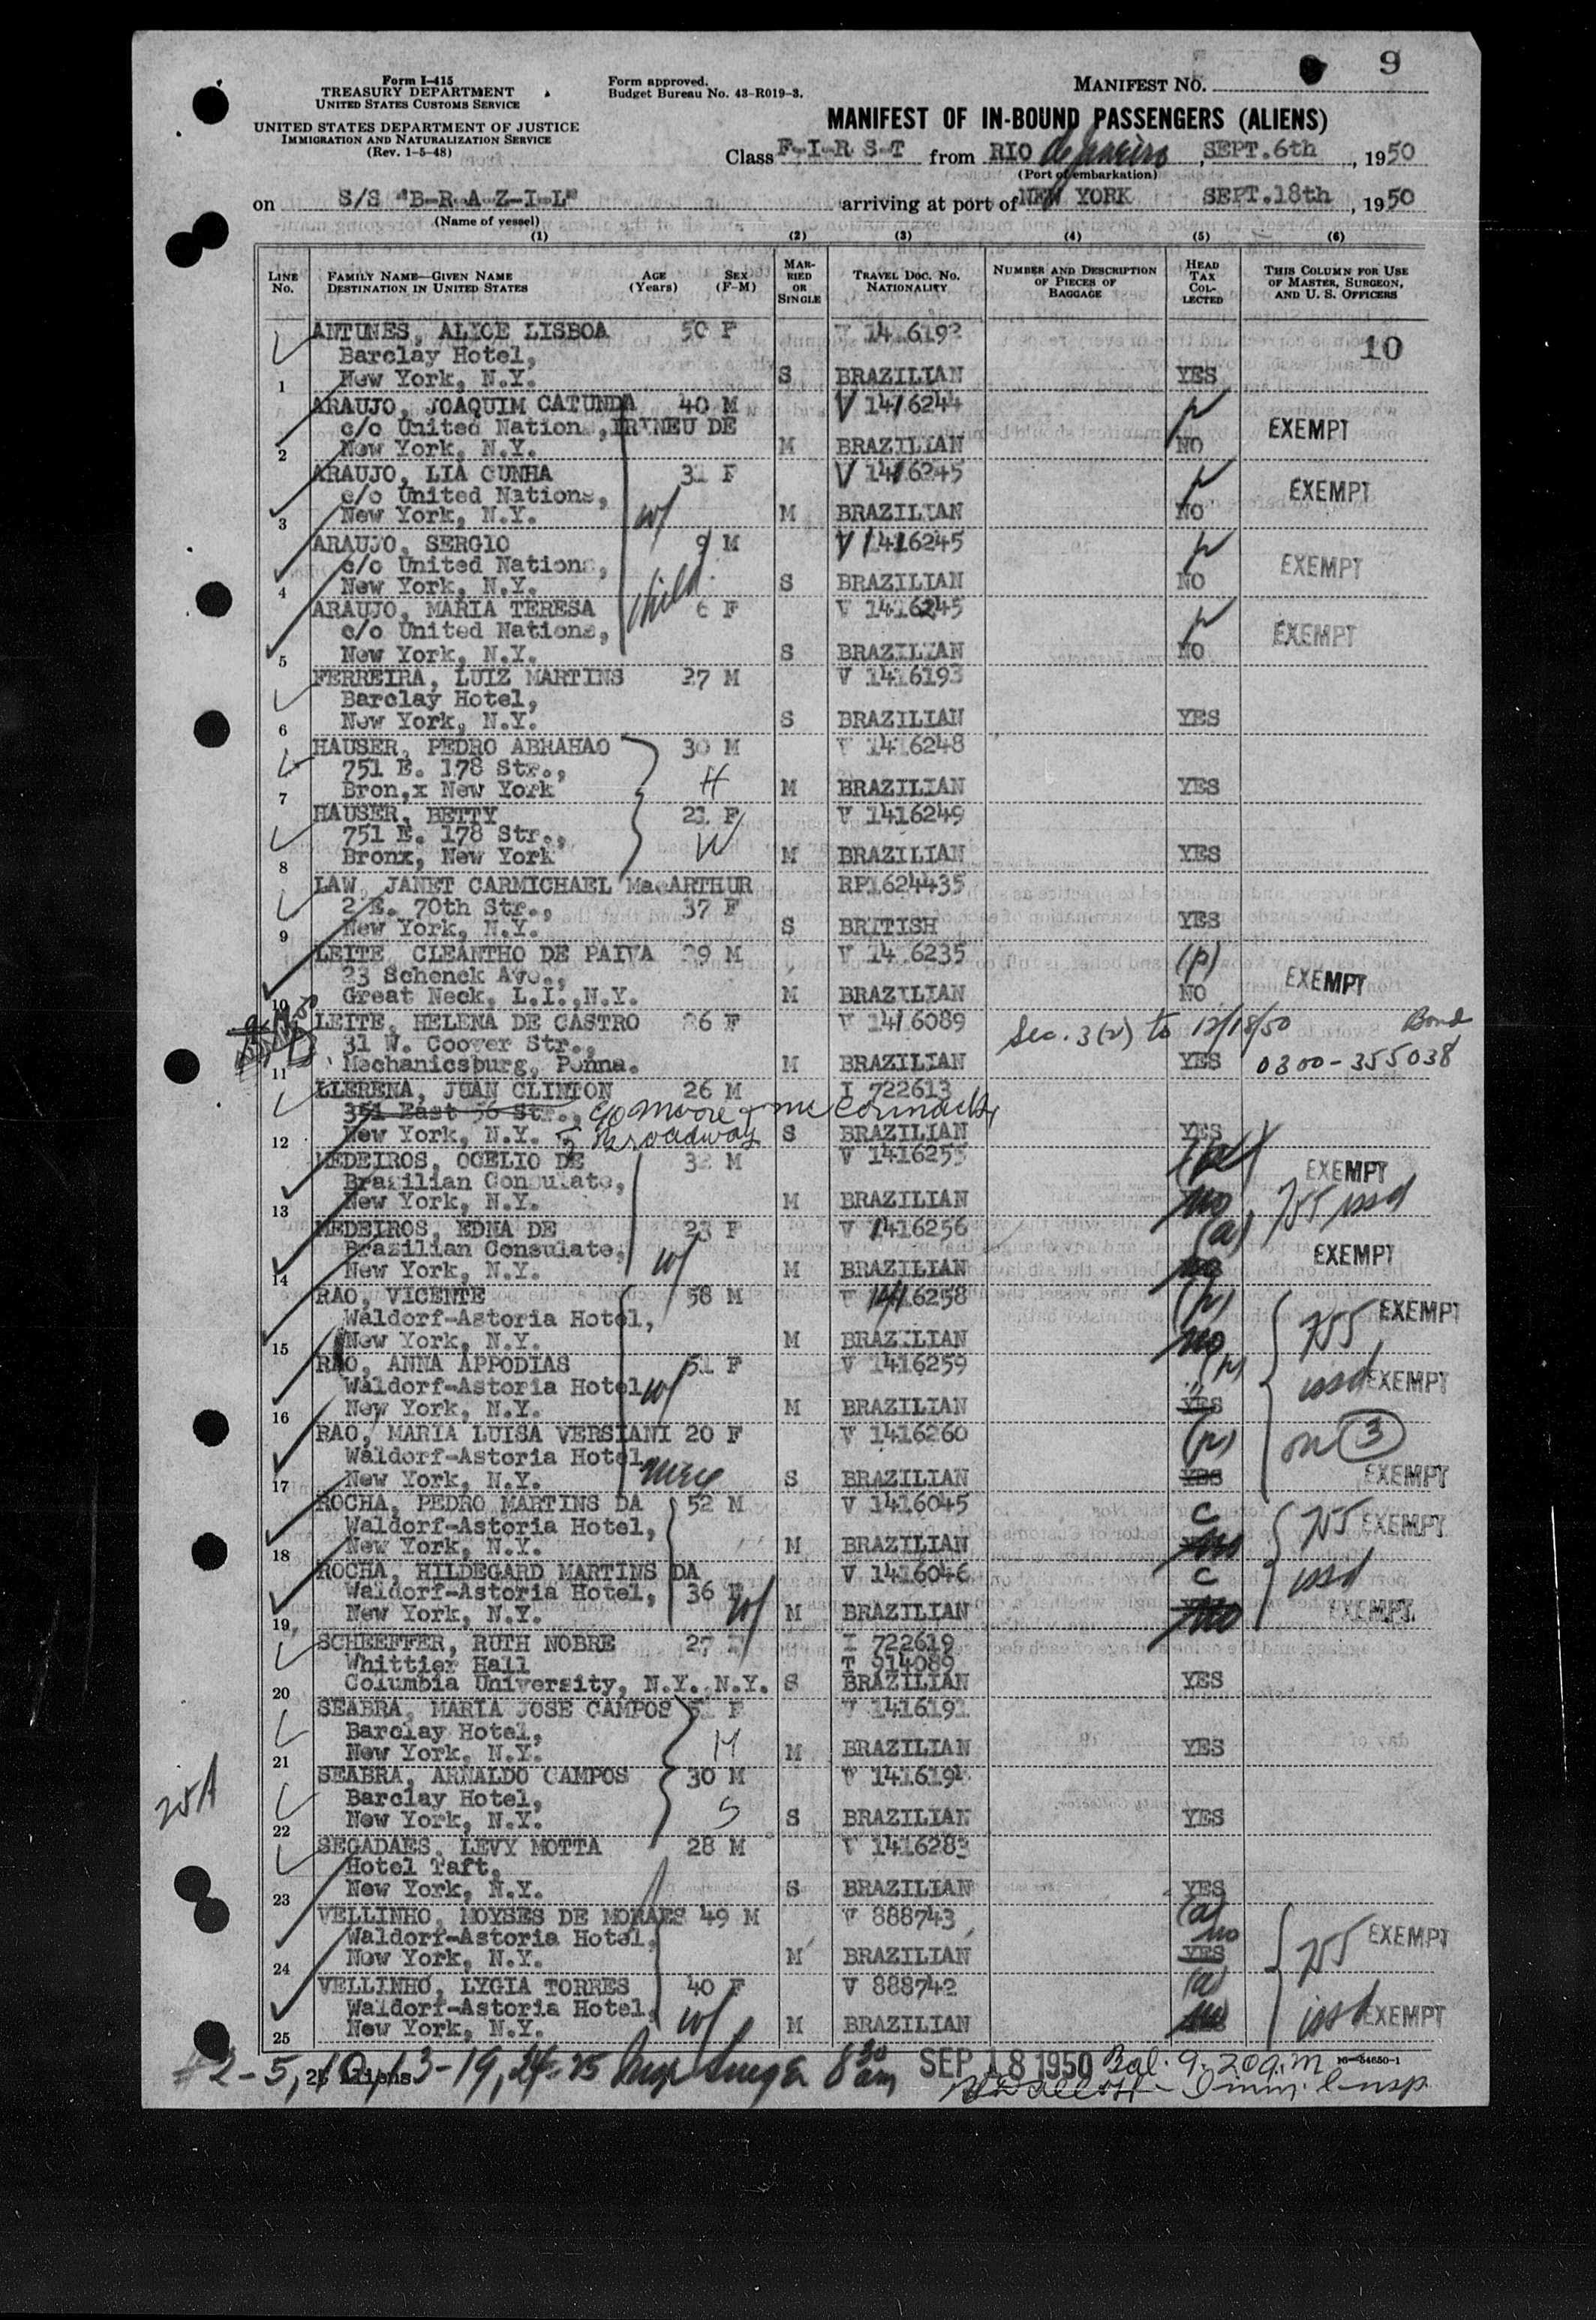 9
Form I-415
TREASURY DEPARTMENT
UNITED STATES CUSTOMS SERVICE
UNITED STATES DEPARTMENT OF JUSTICE
IMMIGRATION AND NATURALIZATION SERVICE
(Rev. 1-5-48)
Form approved.
Budget Bureau No. 43-R019-3.
MANIFEST NO.
MANIFEST OF IN-BOUND PASSENGERS (ALIENS)
Class F-I-R S-T from RIO de Janeiro, SEPT.6th, 1950
(Port of embarkation)
on S/S "B-R-A-Z-I-L" arriving at port of NEW YORK SEPT.18th, 1950
(Name of vessel)
(1) (2) (3) (4) (5) (6)
LINE No. FAMILY NAME—GIVEN NAME DESTINATION IN UNITED STATES AGE (Years) SEX (F-M) MARRIED OR SINGLE TRAVEL DOC. NO. NATIONALITY NUMBER AND DESCRIPTION OF PIECES OF BAGGAGE HEAD TAX COLLECTED THIS COLUMN FOR USE OF MASTER, SURGEON, AND U. S. OFFICERS
ANTUNES, ALICE LISBOA 50 F V 1416192
Barclay Hotel, 10
1 New York, N.Y. S BRAZILIAN YES
ARAUJO, JOAQUIM CATUNDA 40 M V 1416244
c/o United Nations, IRINEU DE EXEMPT
2 New York, N.Y. M BRAZILIAN NO
ARAUJO, LIA CUNHA 31 F V 1416245
c/o United Nations, EXEMPT
3 New York, N.Y. w/ M BRAZILIAN NO
ARAUJO, SERGIO 9 M V 1416245
c/o United Nations, EXEMPT
4 New York, N.Y. child S BRAZILIAN NO
ARAUJO, MARIA TERESA 6 F V 1416245
c/o United Nations, EXEMPT
5 New York, N.Y. S BRAZILIAN NO
FERREIRA, LUIZ MARTINS 27 M V 1416193
Barclay Hotel,
6 New York, N.Y. S BRAZILIAN YES
HAUSER, PEDRO ABRAHAO 30 M V 1416248
751 E. 178 Str.,
7 Bron,x New York H M BRAZILIAN YES
HAUSER, BETTY 21 F V 1416249
751 E. 178 Str.,
8 Bronx, New York W M BRAZILIAN YES
LAW, JANET CARMICHAEL MacARTHUR RP1624435
2 E. 70th Str., 37 F
9 New York, N.Y. S BRITISH YES
LEITE, CLEANTHO DE PAIVA 29 M V 1416235 (p)
23 Schenck Ave., EXEMPT
10 Great Neck, L.I.,N.Y. M BRAZILIAN NO
LEITE, HELENA DE CASTRO 26 F V 1416089 Sec. 3(2) to 12/18/50 Bond
31 W. Coover Str.,
11 Mechanicsburg, Penna. M BRAZILIAN YES 0300-355038
LLERENA, JUAN CLINTON 26 M I 722613
351 East 56 Str., c/o Moore & McCormack
12 New York, N.Y. 5 Broadway S BRAZILIAN YES
MEDEIROS, OCELIO DE 32 M V 1416255
Brazilian Consulate, EXEMPT
13 New York, N.Y. M BRAZILIAN no 755 issd
MEDEIROS, EDNA DE 23 F V 1416256 (a)
Brazilian Consulate, EXEMPT
14 New York, N.Y. w/ M BRAZILIAN
RAO, VICENTE 58 M V 1416258 EXEMPT
Waldorf-Astoria Hotel, 755
15 New York, N.Y. M BRAZILIAN no
RAO, ANNA APPODIAS 51 F V 1416259
Waldorf-Astoria Hotel w/ issd EXEMPT
16 New York, N.Y. M BRAZILIAN YES
RAO, MARIA LUISA VERSIANI 20 F V 1416260
Waldorf-Astoria Hotel on 3
17 New York, N.Y. niece S BRAZILIAN YES EXEMPT
ROCHA, PEDRO MARTINS DA 52 M V 1416045 C
Waldorf-Astoria Hotel, 755 EXEMPT
18 New York, N.Y. M BRAZILIAN no
ROCHA, HILDEGARD MARTINS DA V 1416046 C
Waldorf-Astoria Hotel, 36 F issd
19 New York, N.Y. w/ M BRAZILIAN no EXEMPT
SCHEEFFER, RUTH NOBRE 27 F I 722619
Whittier Hall T 914089
20 Columbia University, N.Y. N.Y. S BRAZILIAN YES
SEABRA, MARIA JOSE CAMPOS 51 F V 1416191
Barclay Hotel,
21 New York, N.Y. M M BRAZILIAN YES
SEABRA, ARNALDO CAMPOS 30 M V 1416194
Barclay Hotel,
22 New York, N.Y. S S BRAZILIAN YES
SEGADAES, LEVY MOTTA 28 M V 1416283
Hotel Taft,
23 New York, N.Y. S BRAZILIAN YES
VELLINHO, MOYSES DE MORAES 49 M V 888743 (a)
Waldorf-Astoria Hotel, no 755 EXEMPT
24 New York, N.Y. M BRAZILIAN YES
VELLINHO, LYGIA TORRES 40 F V 888742 (a)
Waldorf-Astoria Hotel, issd EXEMPT
25 New York, N.Y. w/ M BRAZILIAN
25A
#2-5, 10, 13-19, 24-25 8 30 am SEP 18 1950 Bal. 9.20 a.m 16-54650-1
25 Aliens
Imm. Insp.